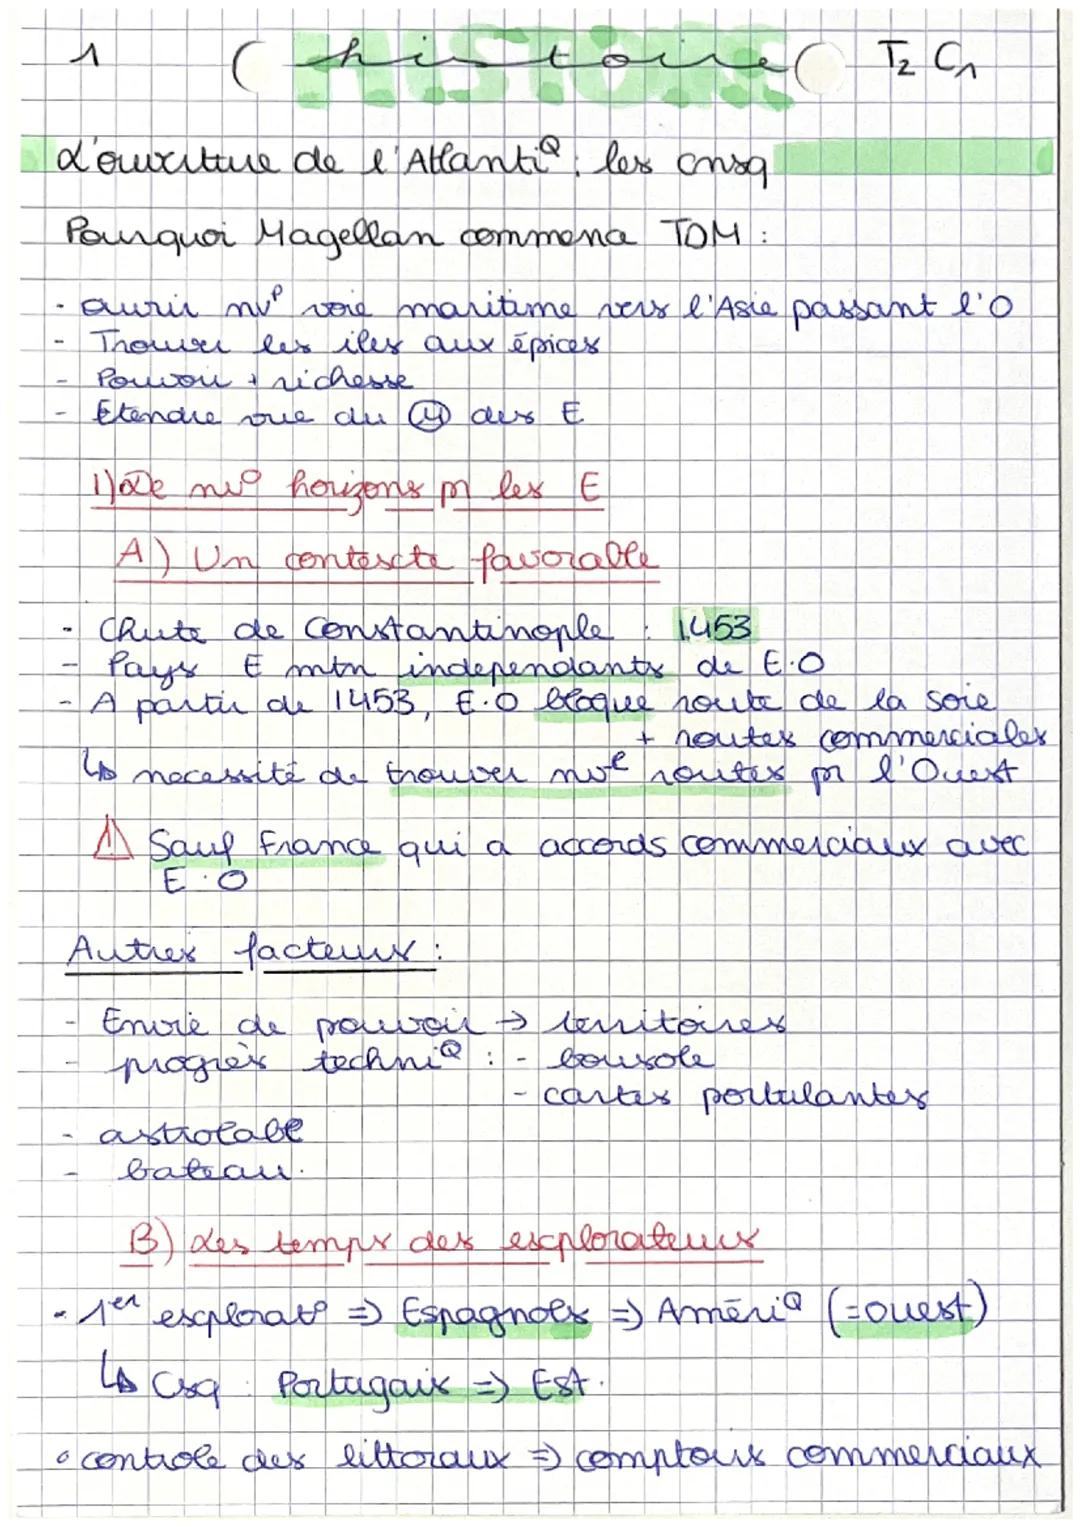 1 histoire HISTOIRE T2 C1
L'ouverture de l'AtlantiQ : les cnsq
Pourquoi Magellan commena TDM :
- ouvrir nvᵉ voie maritime vers l'Asie passant l'O
- Trouver les iles aux épices
- Pouvoir + richesse
- Etendre vue du M des E
1) De nvᵒ horizons pr les E
A) Un contexte favorable
- Chute de Constantinople : 1453
- Pays E mtn independants de E.O
- A partir de 1453, E.O bloque route de la soie
+ routes commerciales
↳ necessité de trouver nvᵉ routes pr l'Ouest
⚠ Sauf France qui a accords commerciaux avec
E.O
Autres facteurs :
- Envie de pouvoir → territoires
- progrès techniQ : - bousole
- cartes portulantes
- astrolabe
- bateau.
B) Les temps des explorateurs
- 1er exploratᵒ => Espagnols => AmériQ (=ouest)
↳ Csq : Portugais => Est.
• controle des littoraux => comptoirs commerciaux